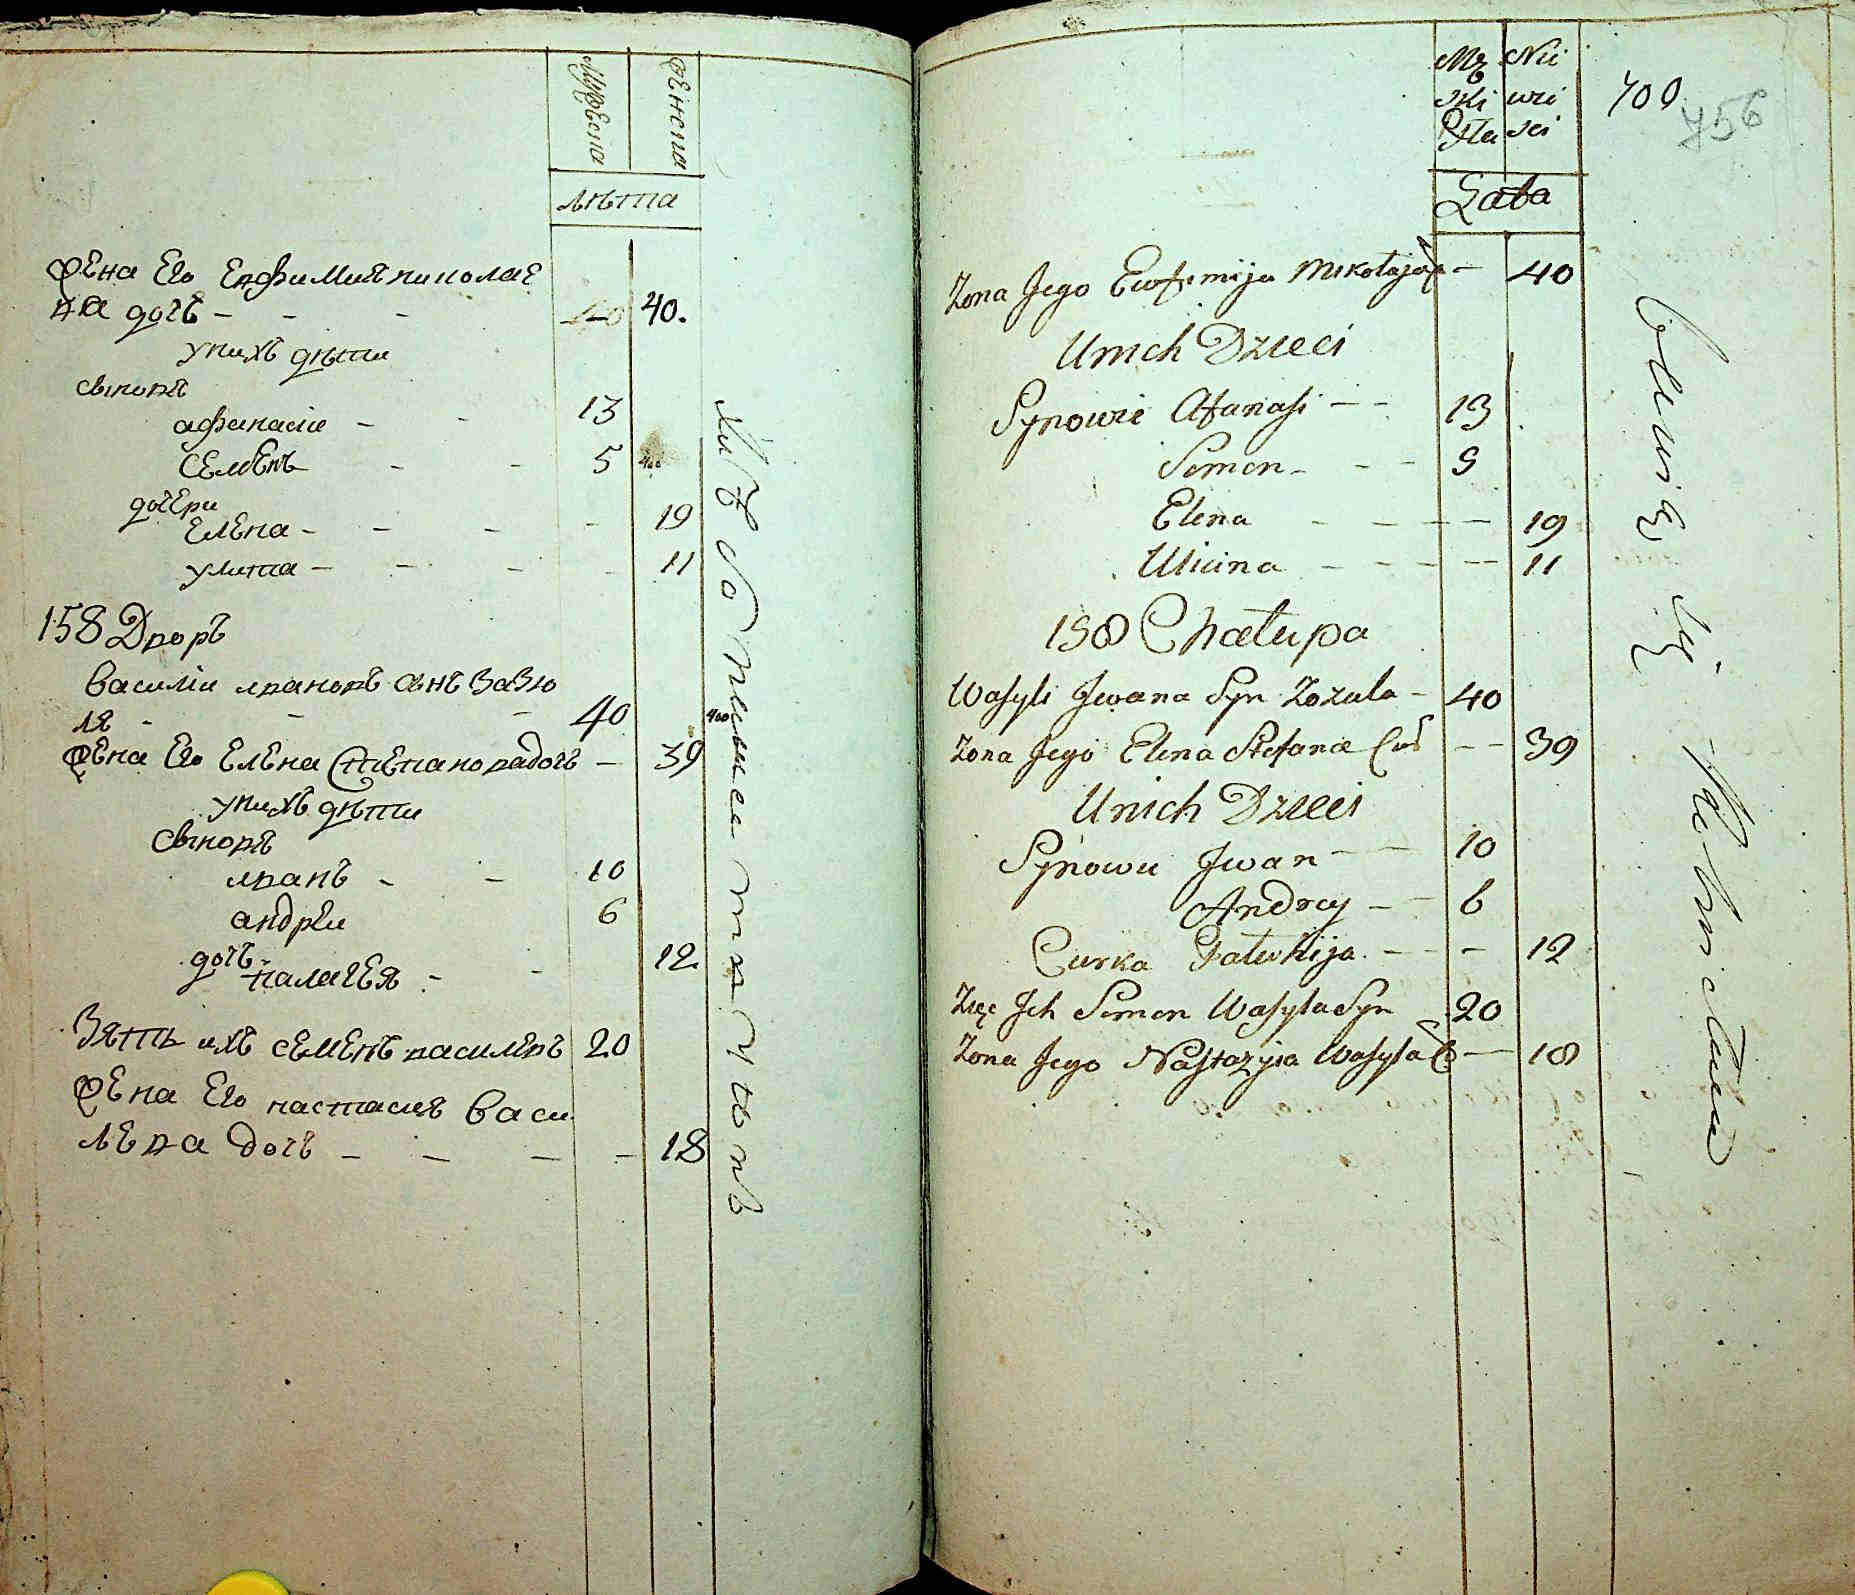 Мужеска Женска
лѣта
Жена Его Евфимия николае
ва дочь - - - 40.
у нихъ дѣти
сыновя
афанасіи - - 13
Семенъ - - 5
дочери
Елена - - - - 19
улита - - - - 11
158 Дворъ
Василіи ивановъ снъ Зазю
ля - - - 40
Жена Его Елена Степановадочь - 39
у нихъ дѣти
Сыновя
иванъ - - 10
андреи 6
дочь
палагея - - 12.
Зять ихъ семенъ василевъ 20
Жена Его настасия Васи
лева дочь - - - - 18
Mę Nie
ski wie
Płci
Lata
700
756
Zona Jego Ewfemija Mikołaja - 40
Unich Dzieci
Synowie Afanasi - - 13
Semen - - - 5
Elena - - - - 19
Uliana - - - - 11
158 Chałupa
Wasyli Jwana Syn Zozula - 40
Zona Jego Elena Stefana Cur - - 39
Unich Dzieci
Synowie Jwan - - 10
Andrey - - 6
Curka Pałachija - - - 12
Zięc Jch Semen Wasyla Syn 20
Zona Jego Nastazyia Wasyla C - 18